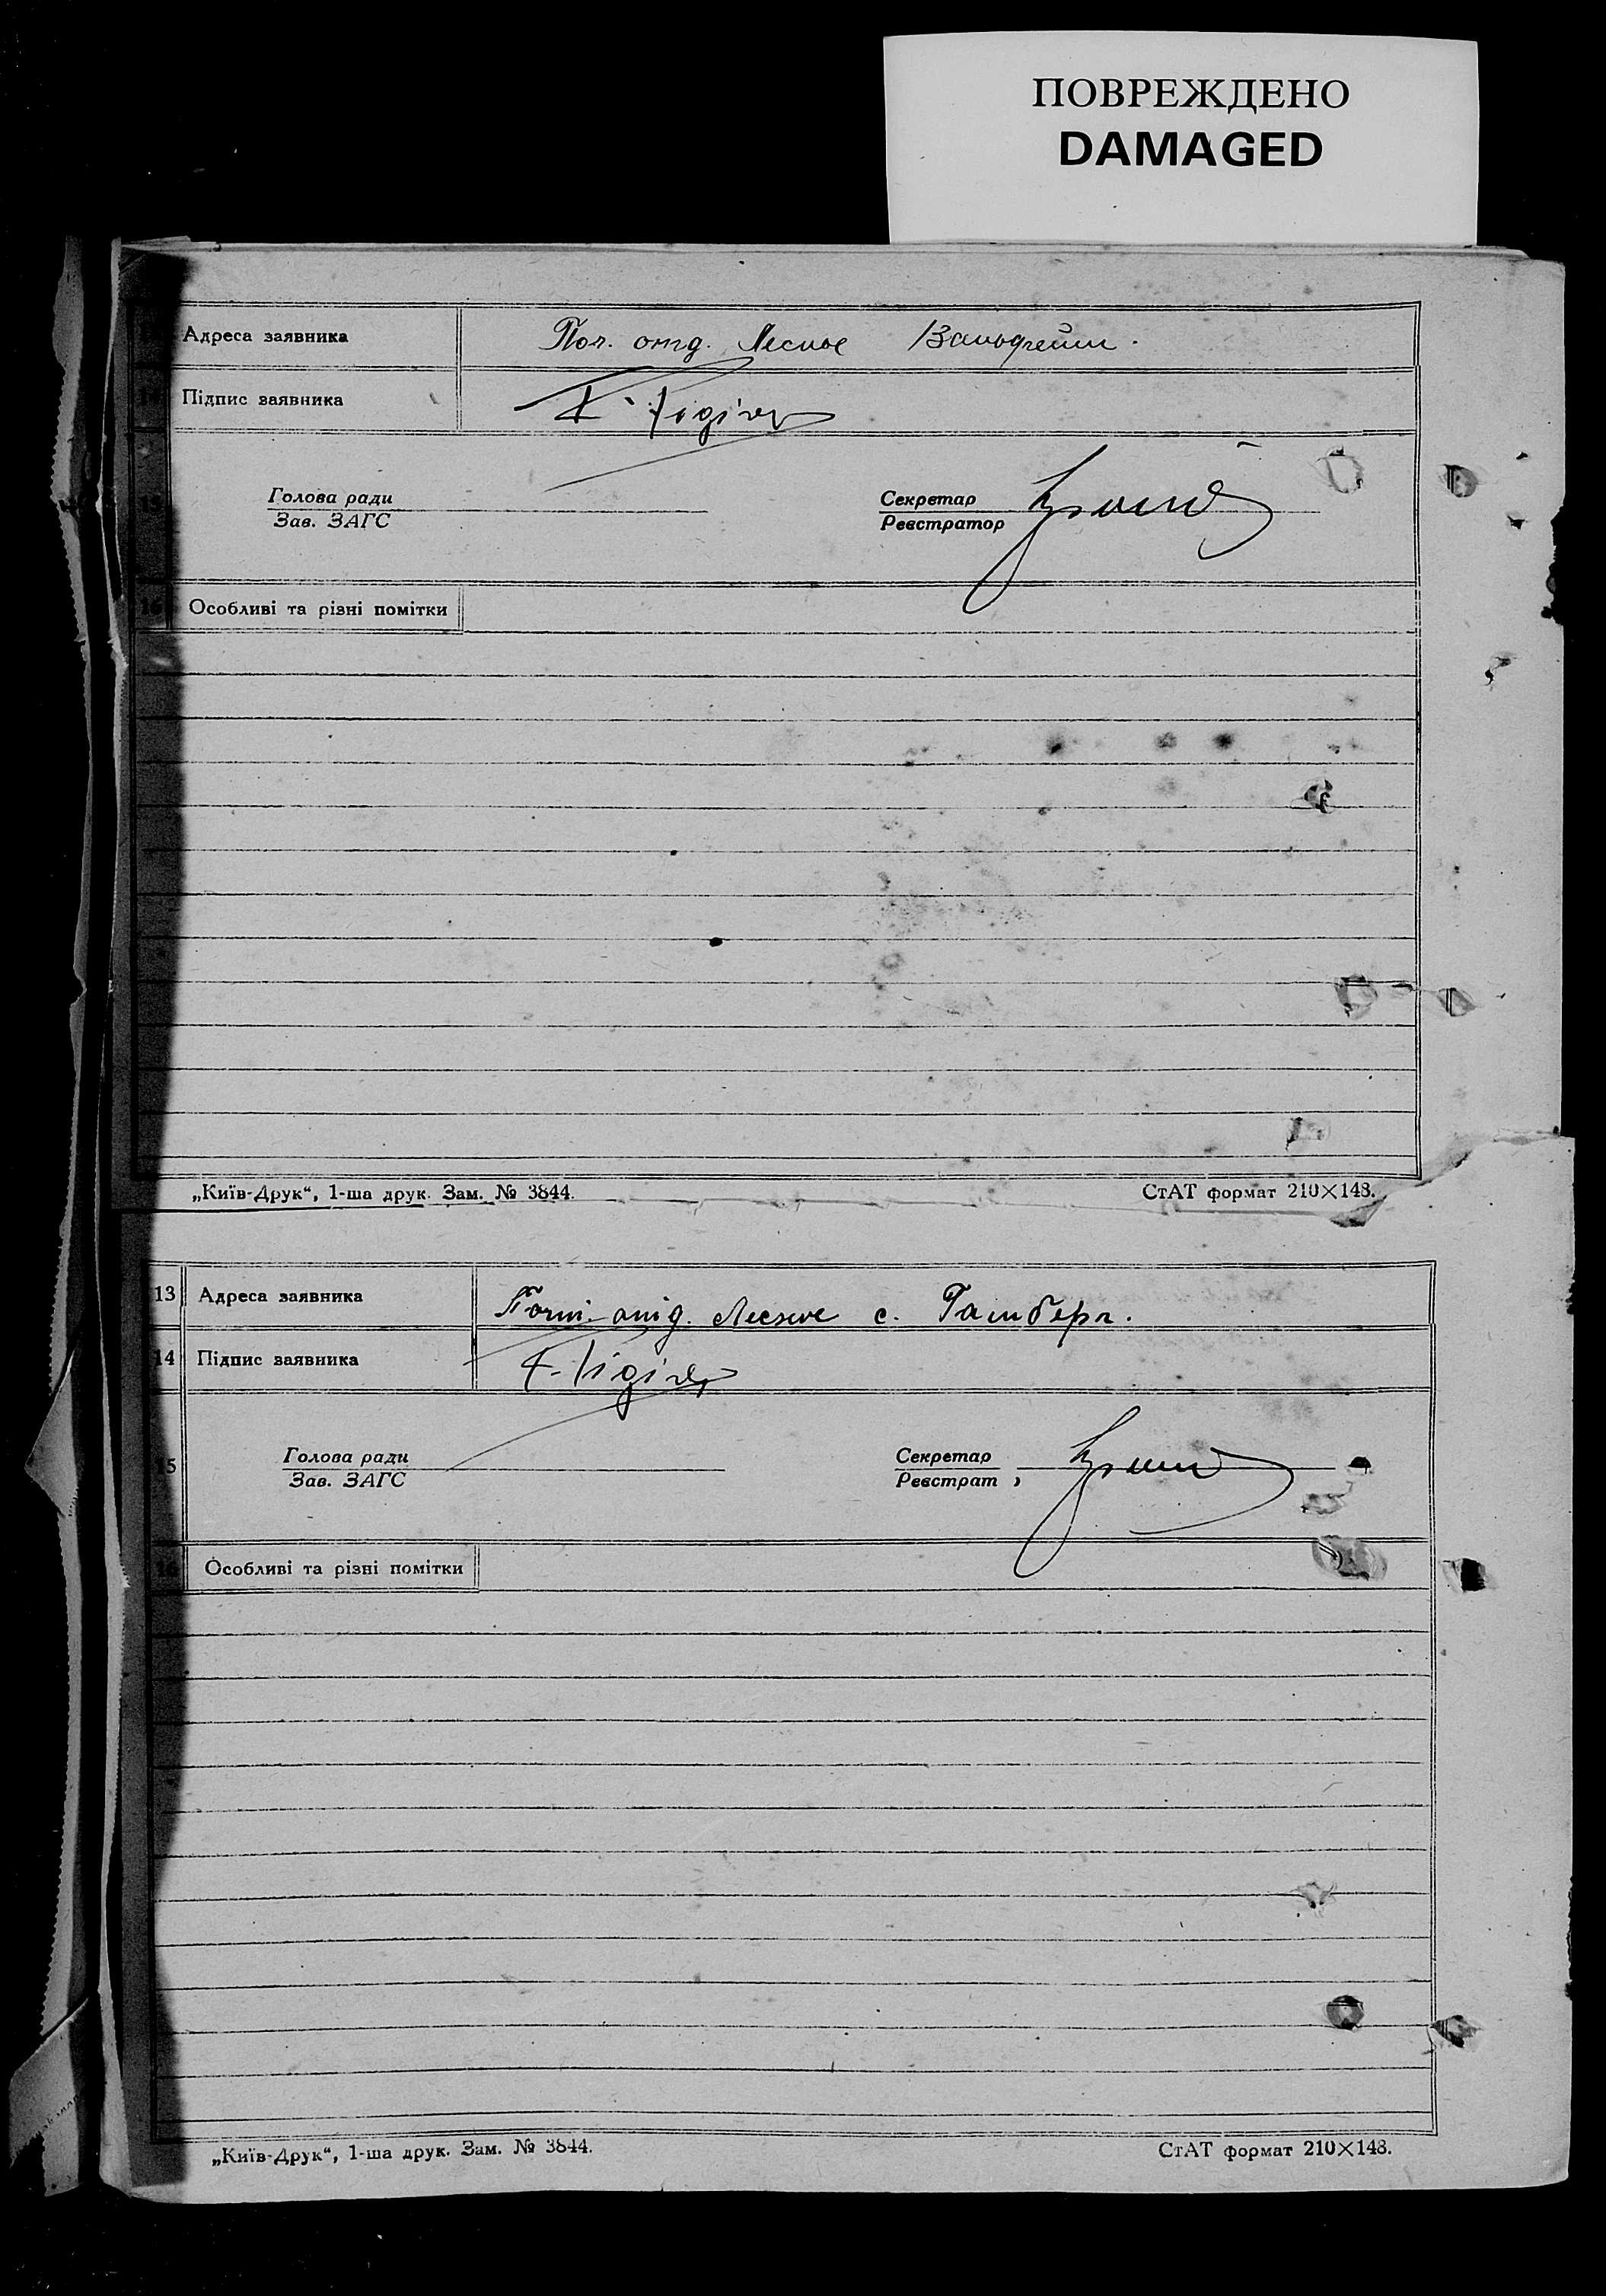 ПОВРЕЖДЕНО
DAMAGED
Адреса заявника Поч. отд. Лесное Вальдгейм.
Підпис заявника
15
Голова ради Секретар
Зав. ЗАГС Реєстратор
16 Особливі та різні помітки
„Київ-Друк“, 1-ша друк. Зам. № 3844. СтАТ формат 210×148.
13 Адреса заявника Почт. отд. Лесное с. Гамберг.
14 Підпис заявника
15
Голова ради Секретар
Зав. ЗАГС Реєстрат
16 Особливі та різні помітки
„Київ-Друк“, 1-ша друк. Зам. № 3844. СтАТ формат 210×148.